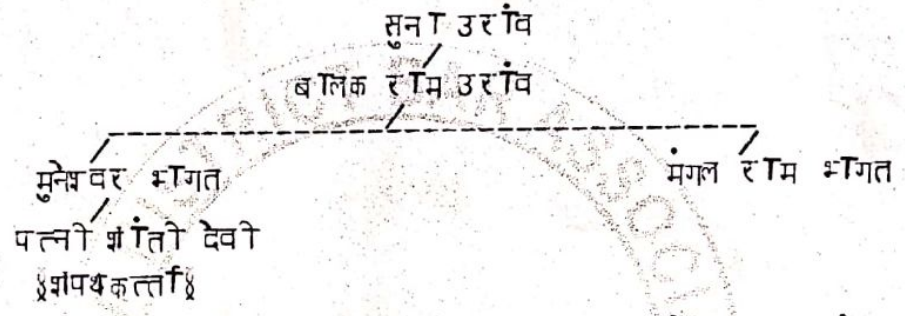 सुना उरांव
बालिक राम उरांव
मुनेश्वर भगत मंगल राम भगत
पत्नी शांती देवी
(शपथकर्त्ता)
ASSOCI